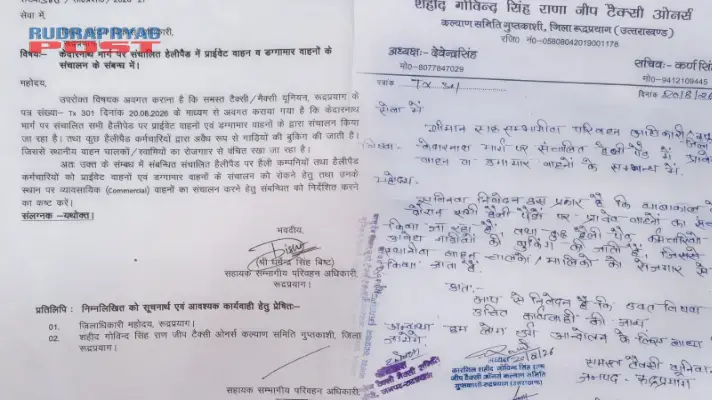 सेवा में,
जिलाधिकारी,
रूद्रप्रयाग
RUDRAPRYAG
POST
विषयः- केदारनाथ मार्ग पर संचालित हैलीपैड में प्राईवेट वाहन व डग्गामार वाहनों के
संचालन के संबन्ध में।
महोदय,
उपरोक्त विषयक अवगत कराना है कि समस्त टैक्सी/मैक्सी यूनियन, रूद्रप्रयाग के
पत्र संख्या- Tx 301 दिनांक 20.06.2026 के माध्यम से अवगत कराया गया है कि केदारनाथ
मार्ग पर संचालित सभी हैलीपैड पर प्राईवेट वाहनों एवं डग्गामार वाहनों के द्वारा संचालन किया
जा रहा है। तथा कुछ हैलीपैड कर्मचारियों द्वारा अवैध रूप से गाड़ियों की बुकिंग की जाती है।
जिससे स्थानीय वाहन चालकों/स्वामियों का रोजगार से वंचित रखा जा रहा है।
अतः उक्त के संम्बध में संबंधित संचालित हैलीपैड पर हैली कम्पनियों तथा हैलीपैड
कर्मचारियों को प्राईवेट वाहनों एवं डग्गामार वाहनों के संचालन को रोकने हेतु तथा उनके
स्थान पर व्यावसायिक (Commercial) वाहनों का संचालन करने हेतु संबंधित को निर्देशित करने
का कष्ट करे।
संलग्नक -यथोक्त।
भवदीय,
(श्री धर्मेन्द्र सिंह बिष्ट)
सहायक सम्भागीय परिवहन अधिकारी,
रूद्रप्रयाग।
प्रतिलिपि : निम्नलिखित को सूचनार्थ एवं आवश्यक कार्यवाही हेतु प्रेषितः-
01. जिलाधिकारी महोदय, रूद्रप्रयाग।
02. शहीद गोविन्द सिंह राण जीप टैक्सी ओनर्स कल्याण समिति गुप्तकाशी, जिला
रूद्रप्रयाग।
सहायक सम्भागीय परिवहन अधिकारी,
रूद्रप्रयाग
शहीद गोविन्द सिंह राणा जीप टैक्सी ओनर्स
कल्याण समिति गुप्तकाशी, जिला रूद्रप्रयाग (उत्तराखण्ड)
रजि० नं०-05808042019001178
अध्यक्षः- देवेन्द्रसिंह
मो०-8077847029
सचिवः- कर्ण सिं
मो०-9412109445
पत्रांक Tx 301
दिनांक 20/6/26
सेवा में
श्रीमान सहायक सम्भागीय परिवहन अधिकारी
विषयः- केदारनाथ मार्ग पर संचालित हैली पैड में
वाहन व डग्गामार वाहनों के सम्बन्ध में।
महोदय,
सविनय निवेदन इस प्रकार है कि
दौरान सभी हैली पैडों पर प्राईवेट वाहनों का
किया जा रहा है, तथा कुछ हैली पैड कर्मचारियों
गाड़ियों की बुकिंग की जाती है, जिससे
वाहन चालकों/मालिकों को रोजगार से
किया जाता है।
अतः
आप से निवेदन है कि उक्त विषय
उचित कार्यवाही की जाय
अन्यथा हम लोग आन्दोलन के लिए
जायेंगे।
समस्त टैक्सी यूनियन
जनपद - रूद्रप्रयाग
अध्यक्ष
शहीद गोविन्द सिंह
जीप टैक्सी ओनर्स कल्याण समिति
गुप्तकाशी-रूद्रप्रयाग (उत्तराखण्ड)